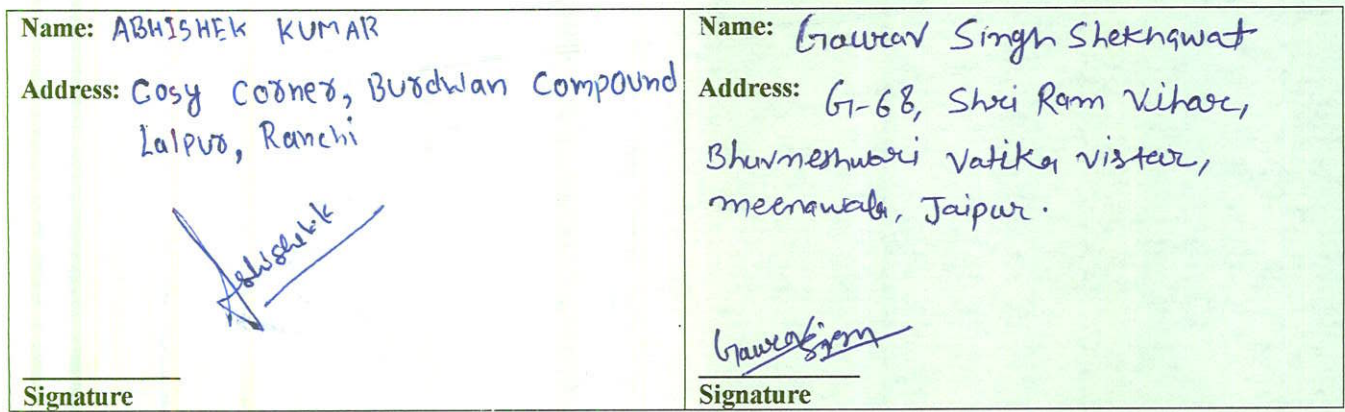 Name: ABHISHEK KUMAR
Address: Cosy Corner, Burdwan Compound
Lalpur, Ranchi
Abhishek.k
Signature
Name: Gaurav Singh Shekhawat
Address: G-68, Shri Ram Vihar,
Bhuvneshwari Vatika Vistar,
meenawala, Jaipur.
Signature